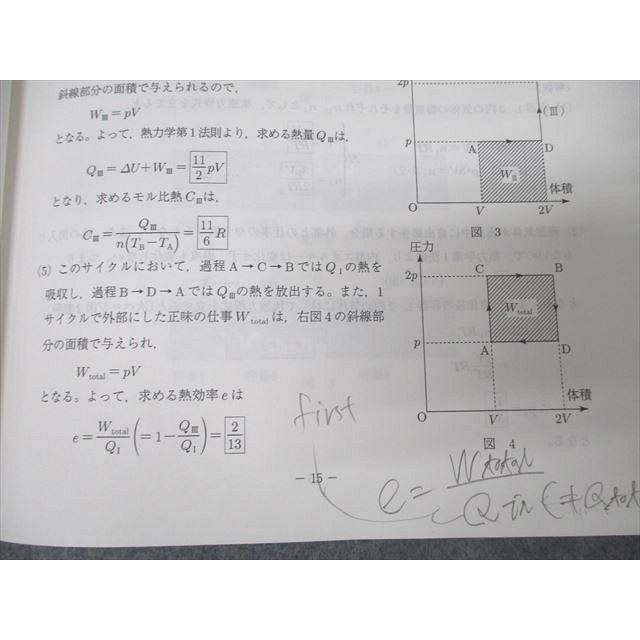 斜線部分の面積で与えられるので，
W_Ⅲ＝pV
となる。よって，熱力学第1法則より，求める熱量Q_Ⅲは，
Q_Ⅲ＝ΔU＋W_Ⅲ＝11/2 pV
となり，求めるモル比熱C_Ⅲは，
C_Ⅲ＝Q_Ⅲ/n(T_B－T_A)＝11/6 R
(5) このサイクルにおいて，過程A→C→BではQ_Ⅰの熱を
吸収し，過程B→D→AではQ_Ⅲの熱を放出する。また，1
サイクルで外部にした正味の仕事W_totalは，右図4の斜線部
分の面積で与えられ，
W_total＝pV
となる。よって，求める熱効率eは
e＝W_total/Q_Ⅰ(＝1－Q_Ⅲ/Q_Ⅰ)＝2/13
2p
(Ⅲ)
p
A
D
W_Ⅲ
体積
O
V
2V
図 3
圧力
2p
C
B
W_total
p
A
D
体積
O
V
2V
図 4
first
e = W total / Q in (≠ Q tot
－ 15 －